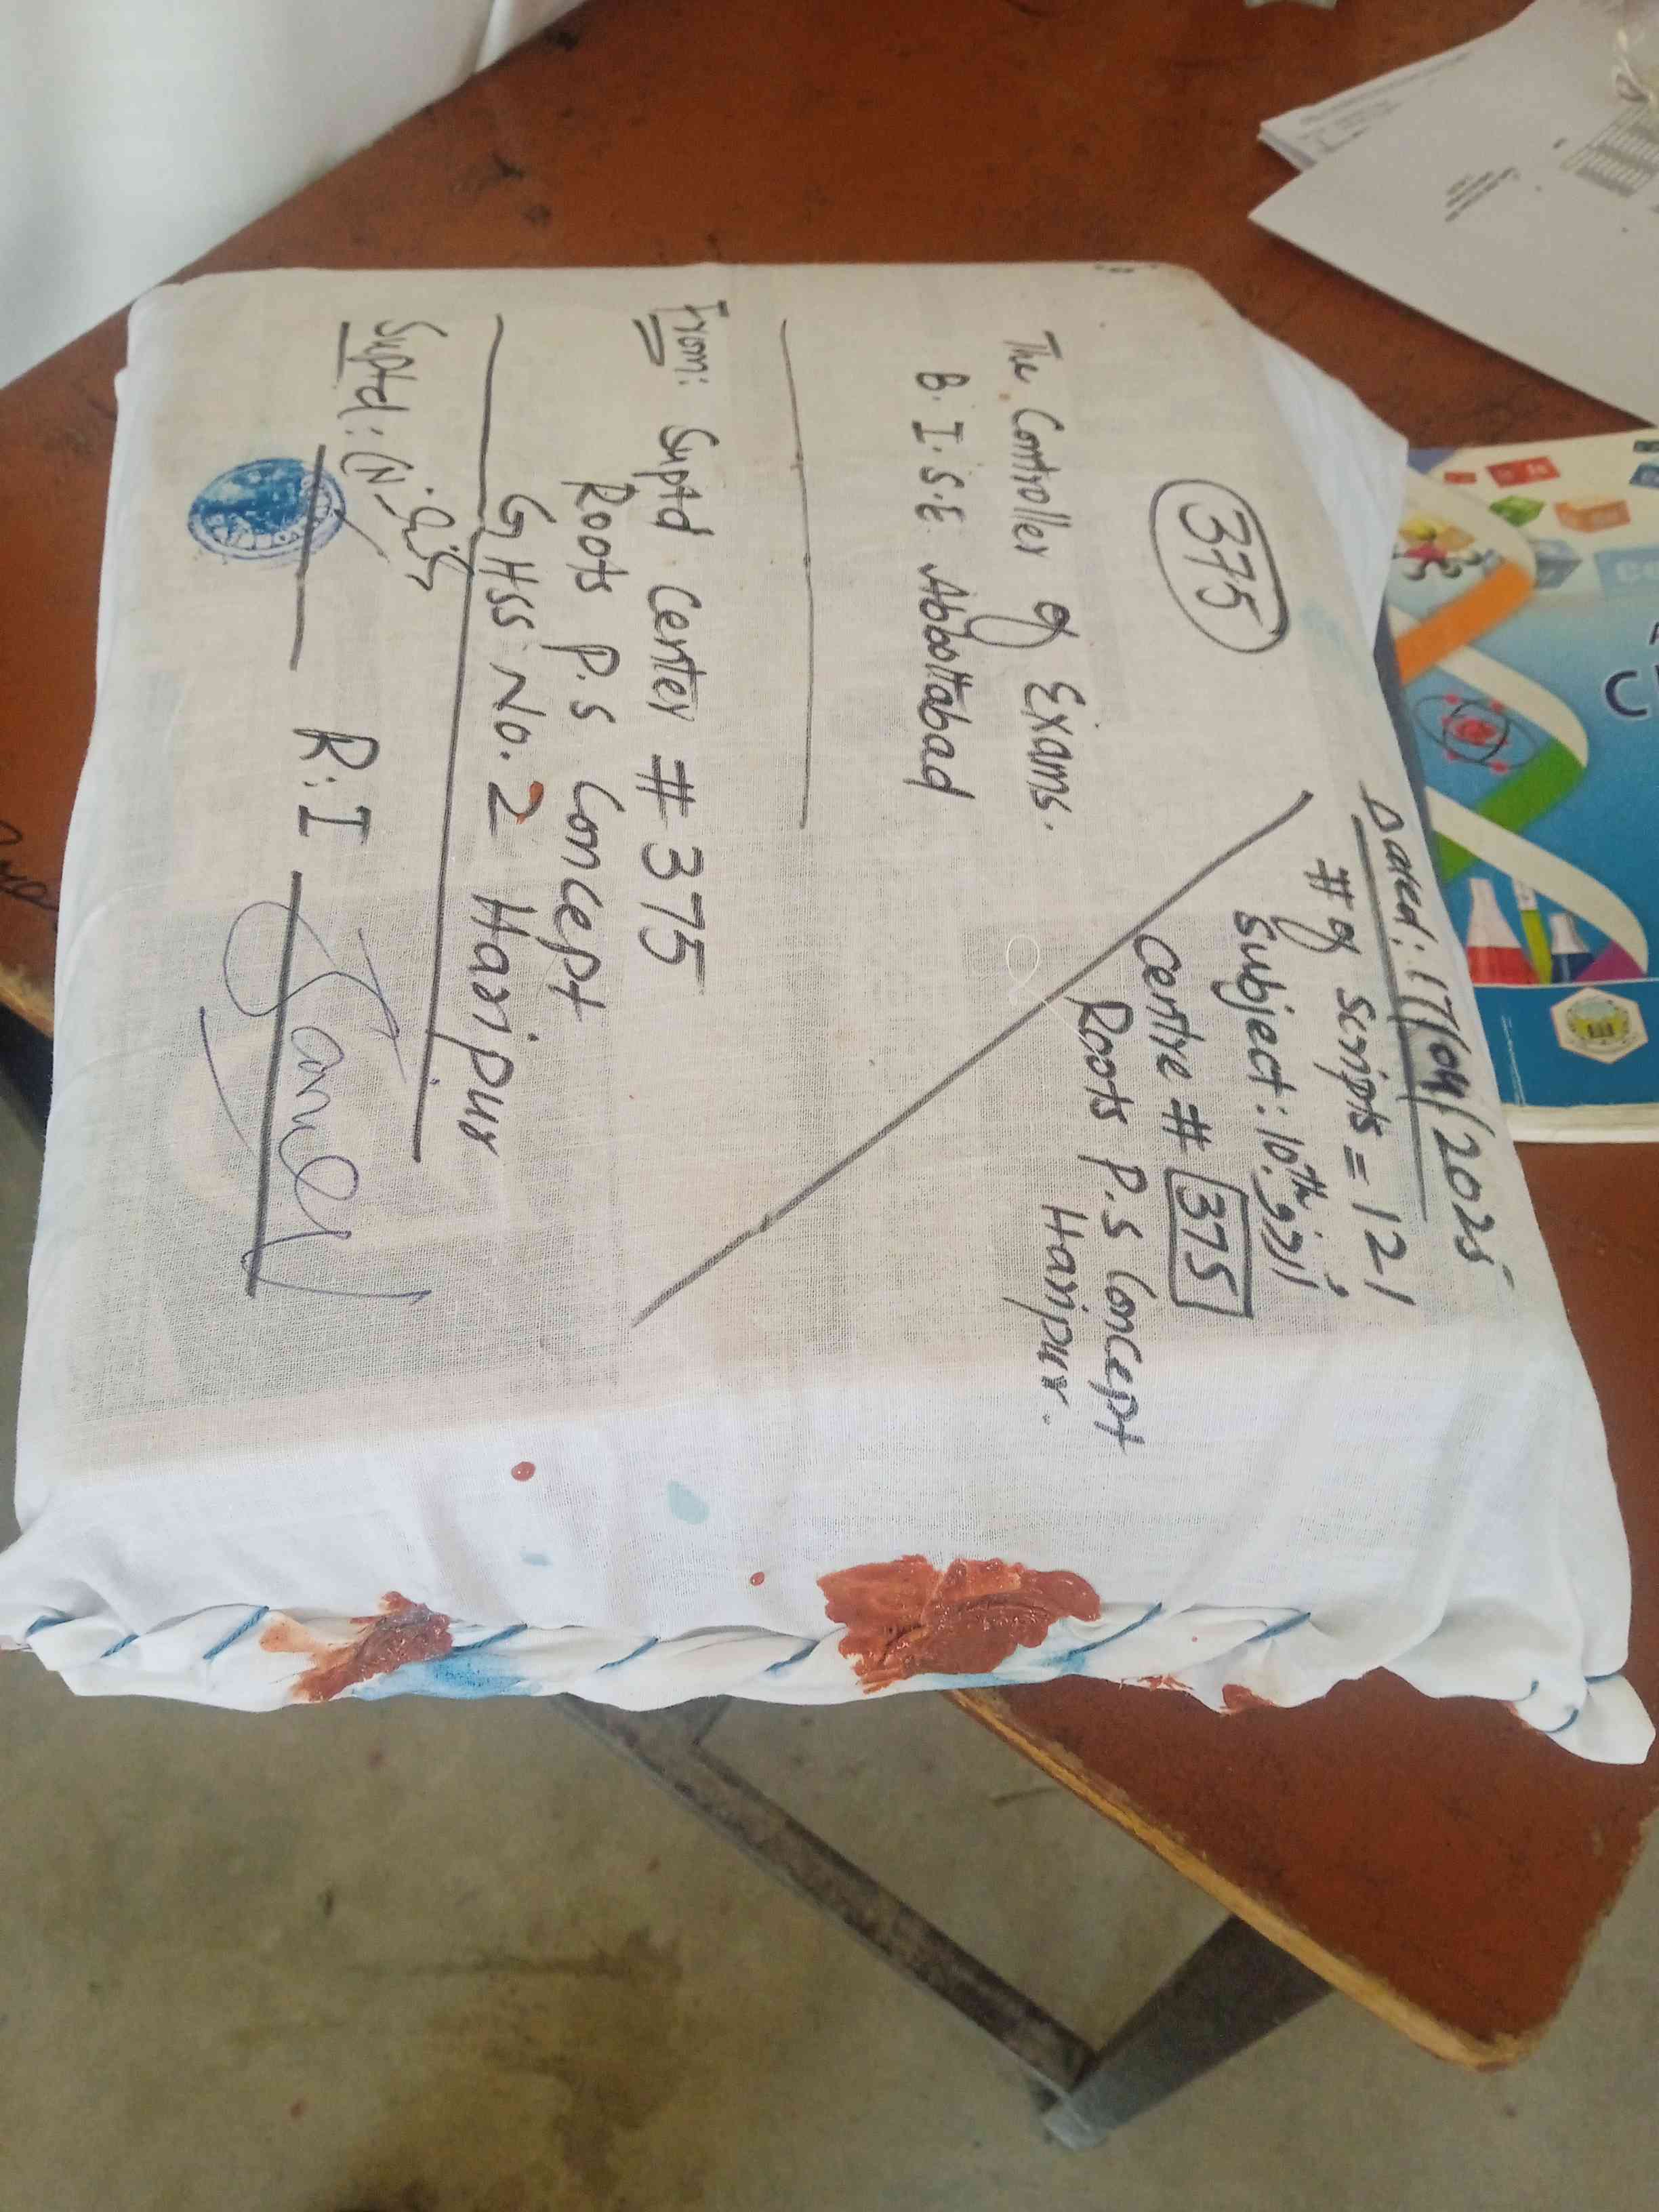 375
Dated: 17/04/2025
# of scripts = 121
Subject: 10th
Centre # 375
Roots P.S Concept
Haripur.
The Controller of Exams.
B.I.S.E Abbottabad
From: Suptd Center # 375
Roots P.S Concept
GHSS No. 2 Haripur
Suptd:
R.I